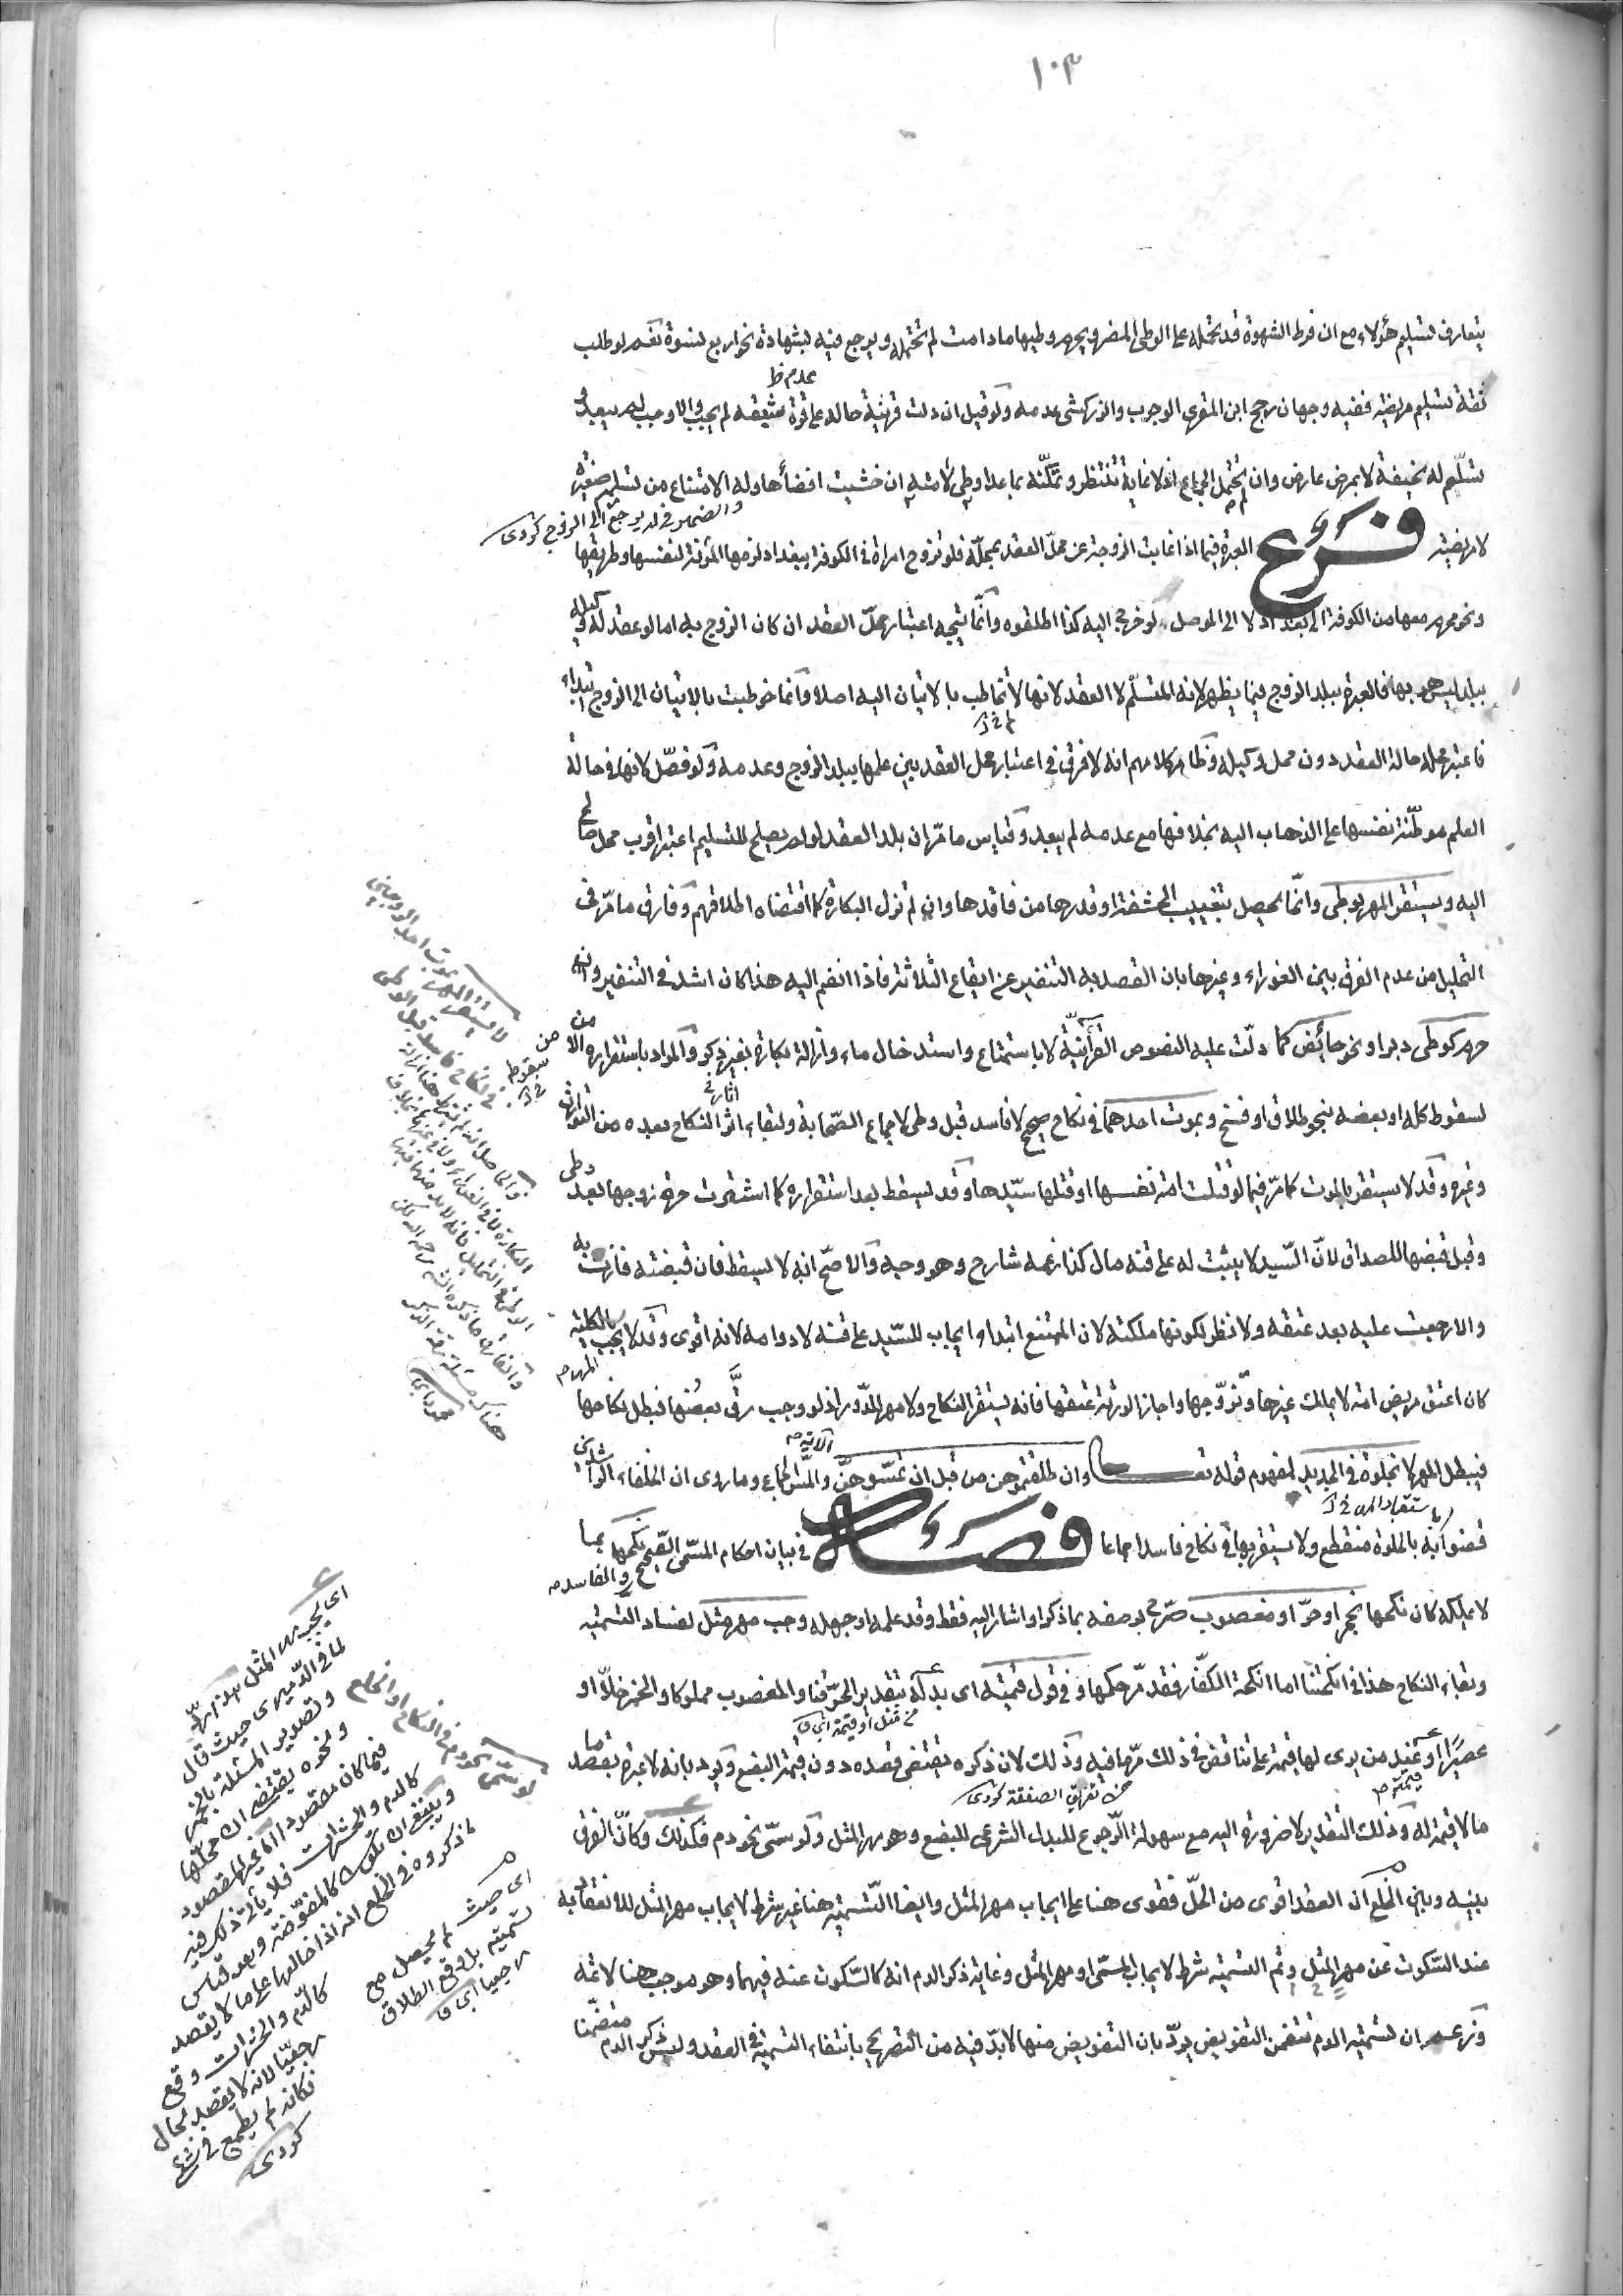 ١٠٣
يتعارف تسليم هؤلاء مع ان فرط الشهوة قد تحمله على الوطئ المضر ويحرم وطيها ما دامت لم تحتمله ويرجع فيه لشهادة نحو اربع نسوة نعم لو طلب
عدم ظ
ثقة تسليم مريضة ففيه وجهان رجح ابن المقري الوجوب والزركشي عدمه ولو قيل ان دلت قرينة حاله على قوة شبقه لم يجب والا وجب لم يبعد و
تسلّم له نحيفة لا بمرض عارض وان لم تحتمل الجماع اذ لا غاية تنتظر وتمكّنه بما عدا وطئ لا منه ان خشيت افضاءها وله الامتناع من تسلم صغيرة
والضمير في له يرجع الى الزوج كردي
لا مريضة فرع العبرة فيما اذا غابت الزوجة عن محلّ العقد بمحلّه فلو تزوج امراة في الكوفة ببغداد لزمها المؤنة لنفسها وطريقها
ونحو محرم معها من الكوفة الى بغداد لا الى الموصل لو خرج اليه كذا اطلقوه وانّما يتجه اعتبار محلّ العقد ان كان الزوج به اما لو عقد له وكيله
ببلد ليس هو بها فالعبرة ببلد الزوج فيما يظهر لانه المتسلّم لا العقد لانها لا تخاطب بالاتيان اليه اصلا وانما خوطبت بالاتيان الى الزوج ابتداء
فاعتبر محله حالة العقد دون محل وكيله وظاهر كلامهم انه لا فرق في اعتبار محل العقد بين علمها ببلد الزوج وعدمه ولو فصّل لانها في حالة
العلم موطّنة نفسها على الذهاب اليه بخلافها مع عدمه لم يبعد وقياس ما مرّ ان بلد العقد لو لم يصلح للتسليم اعتبر اقرب محل صالح
اليه ويستقر المهر بوطئ وانّما يحصل بتغييب الحشفة او قدرها من فاقدها وان لم تزل البكارة كما اقتضاه اطلاقهم وفارق ما مرّ في
التحليل من عدم الفرق بين الغوراء وغيرها بان القصد به التنفير عن ايقاع الثلاثة فاذا انضم اليه هذا كان اشد في التنفير وان
حرم كوطئ دبر او نحو حائض كما دلّت عليه النصوص القرآنيّة لا باستمتاع واستدخال ماء وازالة بكارة بغير ذكر والمراد باستقراره الامن من
سقوط كله او بعضه بنحو طلاق او فسخ وبموت احدهما في نكاح صحيح لا فاسد قبل وطئ لاجماع الصّحابة ولبقاء اثر النكاح بعده من التوارث
وغيره وقد لا يستقر بالموت كما مرّ فيما لو قتلت امة نفسها او قتلها سيّدها وقد يسقط بعد استقراره كما اشترت حرة زوجها بعد وطئ
وقبل قبضها للصداق لانّ السّيد لا يثبت له على قنه مال كذا زعمه شارح وهو وجيه والاصحّ انه لا يسقط فان قبضته فازت به
والا رجعت عليه بعد عتقه ولا نظر لكونها ملكته لان الممتنع ابتداء ايجاب للسّيد على قنه لا دوامه لانه اقوى وقد لا يجب بالكلية
المهر
كان اعتق مريض امة لا يملك غيرها وتزوّجها واجاز الورثة عتقها فانه يستقر النكاح ولا مهر للدّور اذ لو وجب رقّ بعضها فبطل نكاحها
فيبطل المهر لا بخلوة في الجديد لمفهوم قوله تعالى وان طلقتموهن من قبل ان تمسّوهنّ الآية والمسّ الجماع وما روى ان الخلفاء الراشدين
قضوا به بالخلوة منقطع ولا يستقر بها في نكاح فاسد اجماعا فصل في بيان احكام المسمّى الصّحيح والفاسد نكحها بما
لا يملكه كان نكحها بخمر او حرّ او مغصوب صرّح بوصفه بما ذكر او اشار اليه فقط وقد علمه او جهله وجب مهر مثل لفساد التسمية
وبقاء النكاح هذا في انكحتنا اما انكحة الكفّار فقد مرّ حكمها وفي قول قيمته اى بدله بتقدير الحرّ قنا والمغصوب مملوكا والخمر خلّا او
من مثل او قيمة
عصيرًا او عند من يرى لها قيمة على تناقض في ذلك مرّ ما فيه وذلك لان ذكره يقتضى قصده دون قيمة البضع ويرد بانه لا عبرة بقصد ما
من تفريق الصفقة كردي
ما لا قيمة له وذلك التقدير لا ضرورة اليه مع سهولة الرّجوع للبدل الشرعي للبضع وهو مهر المثل ولو سمّى نحو دم فكذلك وكانّ الفرق
بينه وبين الخلع ان العقد اقوى من الحلّ فقوى هنا على ايجاب مهر المثل وايضا التّسمية هنا غير شرط لايجاب مهر المثل لانعقاد به
عند السّكوت عن مهر المثل وثم التسمية شرط لايجاب المسمى او مهر المثل وغاية ذكر الدم انه كالسّكوت عنه فيهما وهو موجب هنا لا ثمه
وزعم ان تسمية الدم تتضمن التفويض يردّ بان التفويض منها لا بدّ فيه من التصريح بانتفاء التسمية في العقد وليس ذكر الدم متضمّنا
لا يستقر المهر بموت احد الزوجين
في نكاح فاسد قبل الوطئ
اى يجب مهر المثل
لما في الدّميري حيث قال
وتصوير المسئلة بالخمر
ونحوه يقتضى ان محلّها
فيما كان مقصودا اما غير المقصود
كالدم والحشرات فلا يأتي ذلك فيه
وينبغي ان تكون كالمفوّضة وبعد قياس
ما ذكروه في الخلع انه اذا خالعها على ما لا يقصد
كالدّم والحشرات وقع
رجعيّا لانه لا يقصد بحال
فكانه لم يطمع في شئ
كردي
لو سمّى نحو دم في النكاح او الخلع
اى حيث لم يحصل مع
تسميته بل وقع الطلاق
رجعيا